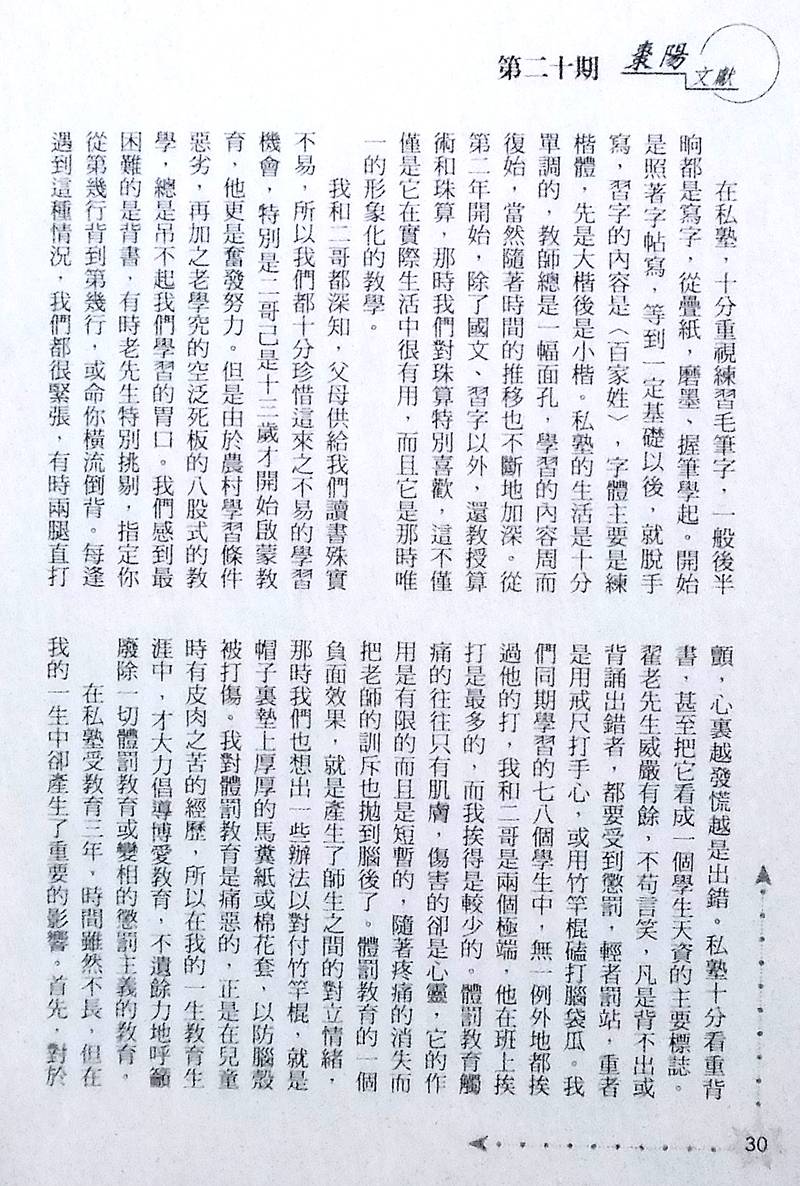 第二十期 棗陽文獻
在私塾，十分重視練習毛筆字，一般後半
晌都是寫字，從疊紙，磨墨、握筆學起。開始
是照著字帖寫，等到一定基礎以後，就脫手
寫，習字的內容是〈百家姓〉，字體主要是練
楷體，先是大楷後是小楷。私塾的生活是十分
單調的，教師總是一幅面孔，學習的內容周而
復始，當然隨著時間的推移也不斷地加深。從
第二年開始，除了國文、習字以外，還教授算
術和珠算，那時我們對珠算特別喜歡，這不僅
僅是它在實際生活中很有用，而且它是那時唯
一的形象化的教學。
我和二哥都深知，父母供給我們讀書殊實
不易，所以我們都十分珍惜這來之不易的學習
機會，特別是二哥己是十三歲才開始啟蒙教
育，他更是奮發努力。但是由於農村學習條件
惡劣，再加之老學究的空泛死板的八股式的教
學，總是吊不起我們學習的胃口。我們感到最
困難的是背書，有時老先生特別挑剔，指定你
從第幾行背到第幾行，或命你橫流倒背。每逢
遇到這種情況，我們都很緊張，有時兩腿直打
顫，心裏越發慌越是出錯。私塾十分看重背
書，甚至把它看成一個學生天資的主要標誌。
翟老先生威嚴有餘，不苟言笑，凡是背不出或
背誦出錯者，都要受到懲罰，輕者罰站，重者
是用戒尺打手心，或用竹竿棍磕打腦袋瓜。我
們同期學習的七八個學生中，無一例外地都挨
過他的打，我和二哥是兩個極端，他在班上挨
打是最多的，而我挨得是較少的。體罰教育觸
痛的往往只有肌膚，傷害的卻是心靈，它的作
用是有限的而且是短暫的，隨著疼痛的消失而
把老師的訓斥也拋到腦後了。體罰教育的一個
負面效果，就是產生了師生之間的對立情緒，
那時我們也想出一些辦法以對付竹竿棍，就是
帽子裏墊上厚厚的馬糞紙或棉花套，以防腦殼
被打傷。我對體罰教育是痛惡的，正是在兒童
時有皮肉之苦的經歷，所以在我的一生教育生
涯中，才大力倡導博愛教育，不遺餘力地呼籲
廢除一切體罰教育或變相的懲罰主義的教育。
在私塾受教育三年，時間雖然不長，但在
我的一生中卻產生了重要的影響。首先，對於
30